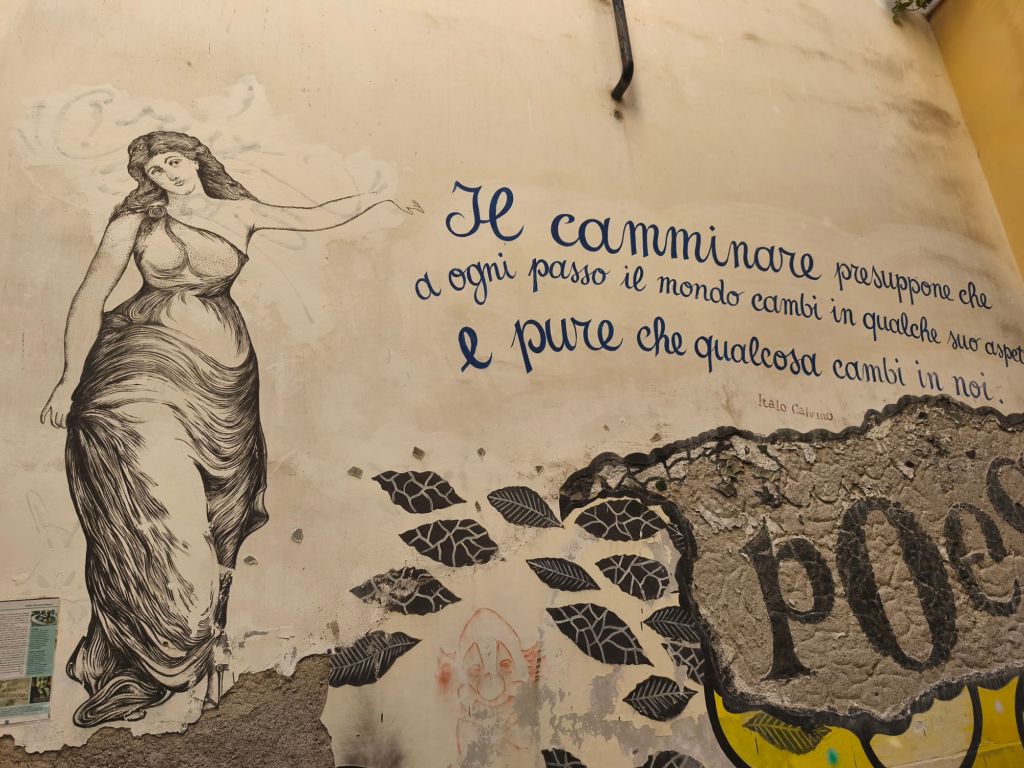 Il camminare presuppone che
a ogni passo il mondo cambi in qualche suo aspet
e pure che qualcosa cambi in noi.
Italo Calvino
poes